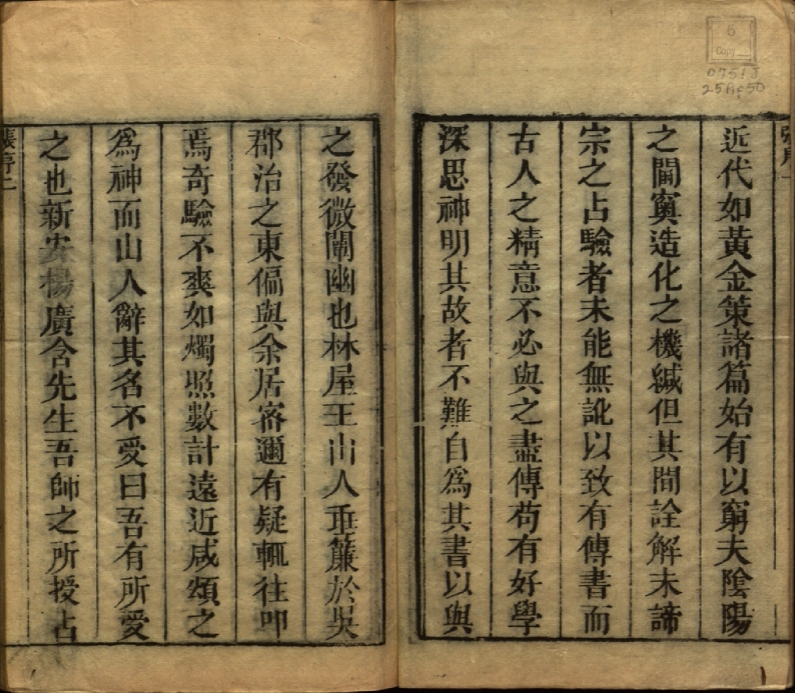 近代如黃金策諸篇始有以窮夫陰陽
之閫窔造化之機緘但其間詮解未諦
宗之占驗者未能無訛以致有傳書而
古人之精意不必與之盡傳苟有好學
深思神明其故者不難自為其書以與
之發微闡幽也林屋王山人垂簾於吳
郡治之東偏與余居密邇有疑輒往叩
焉奇驗不爽如燭照數計遠近咸頌之
為神而山人辭其名不受曰吾有所受
之也新安楊廣含先生吾師之所授占
張序二
6
Copy